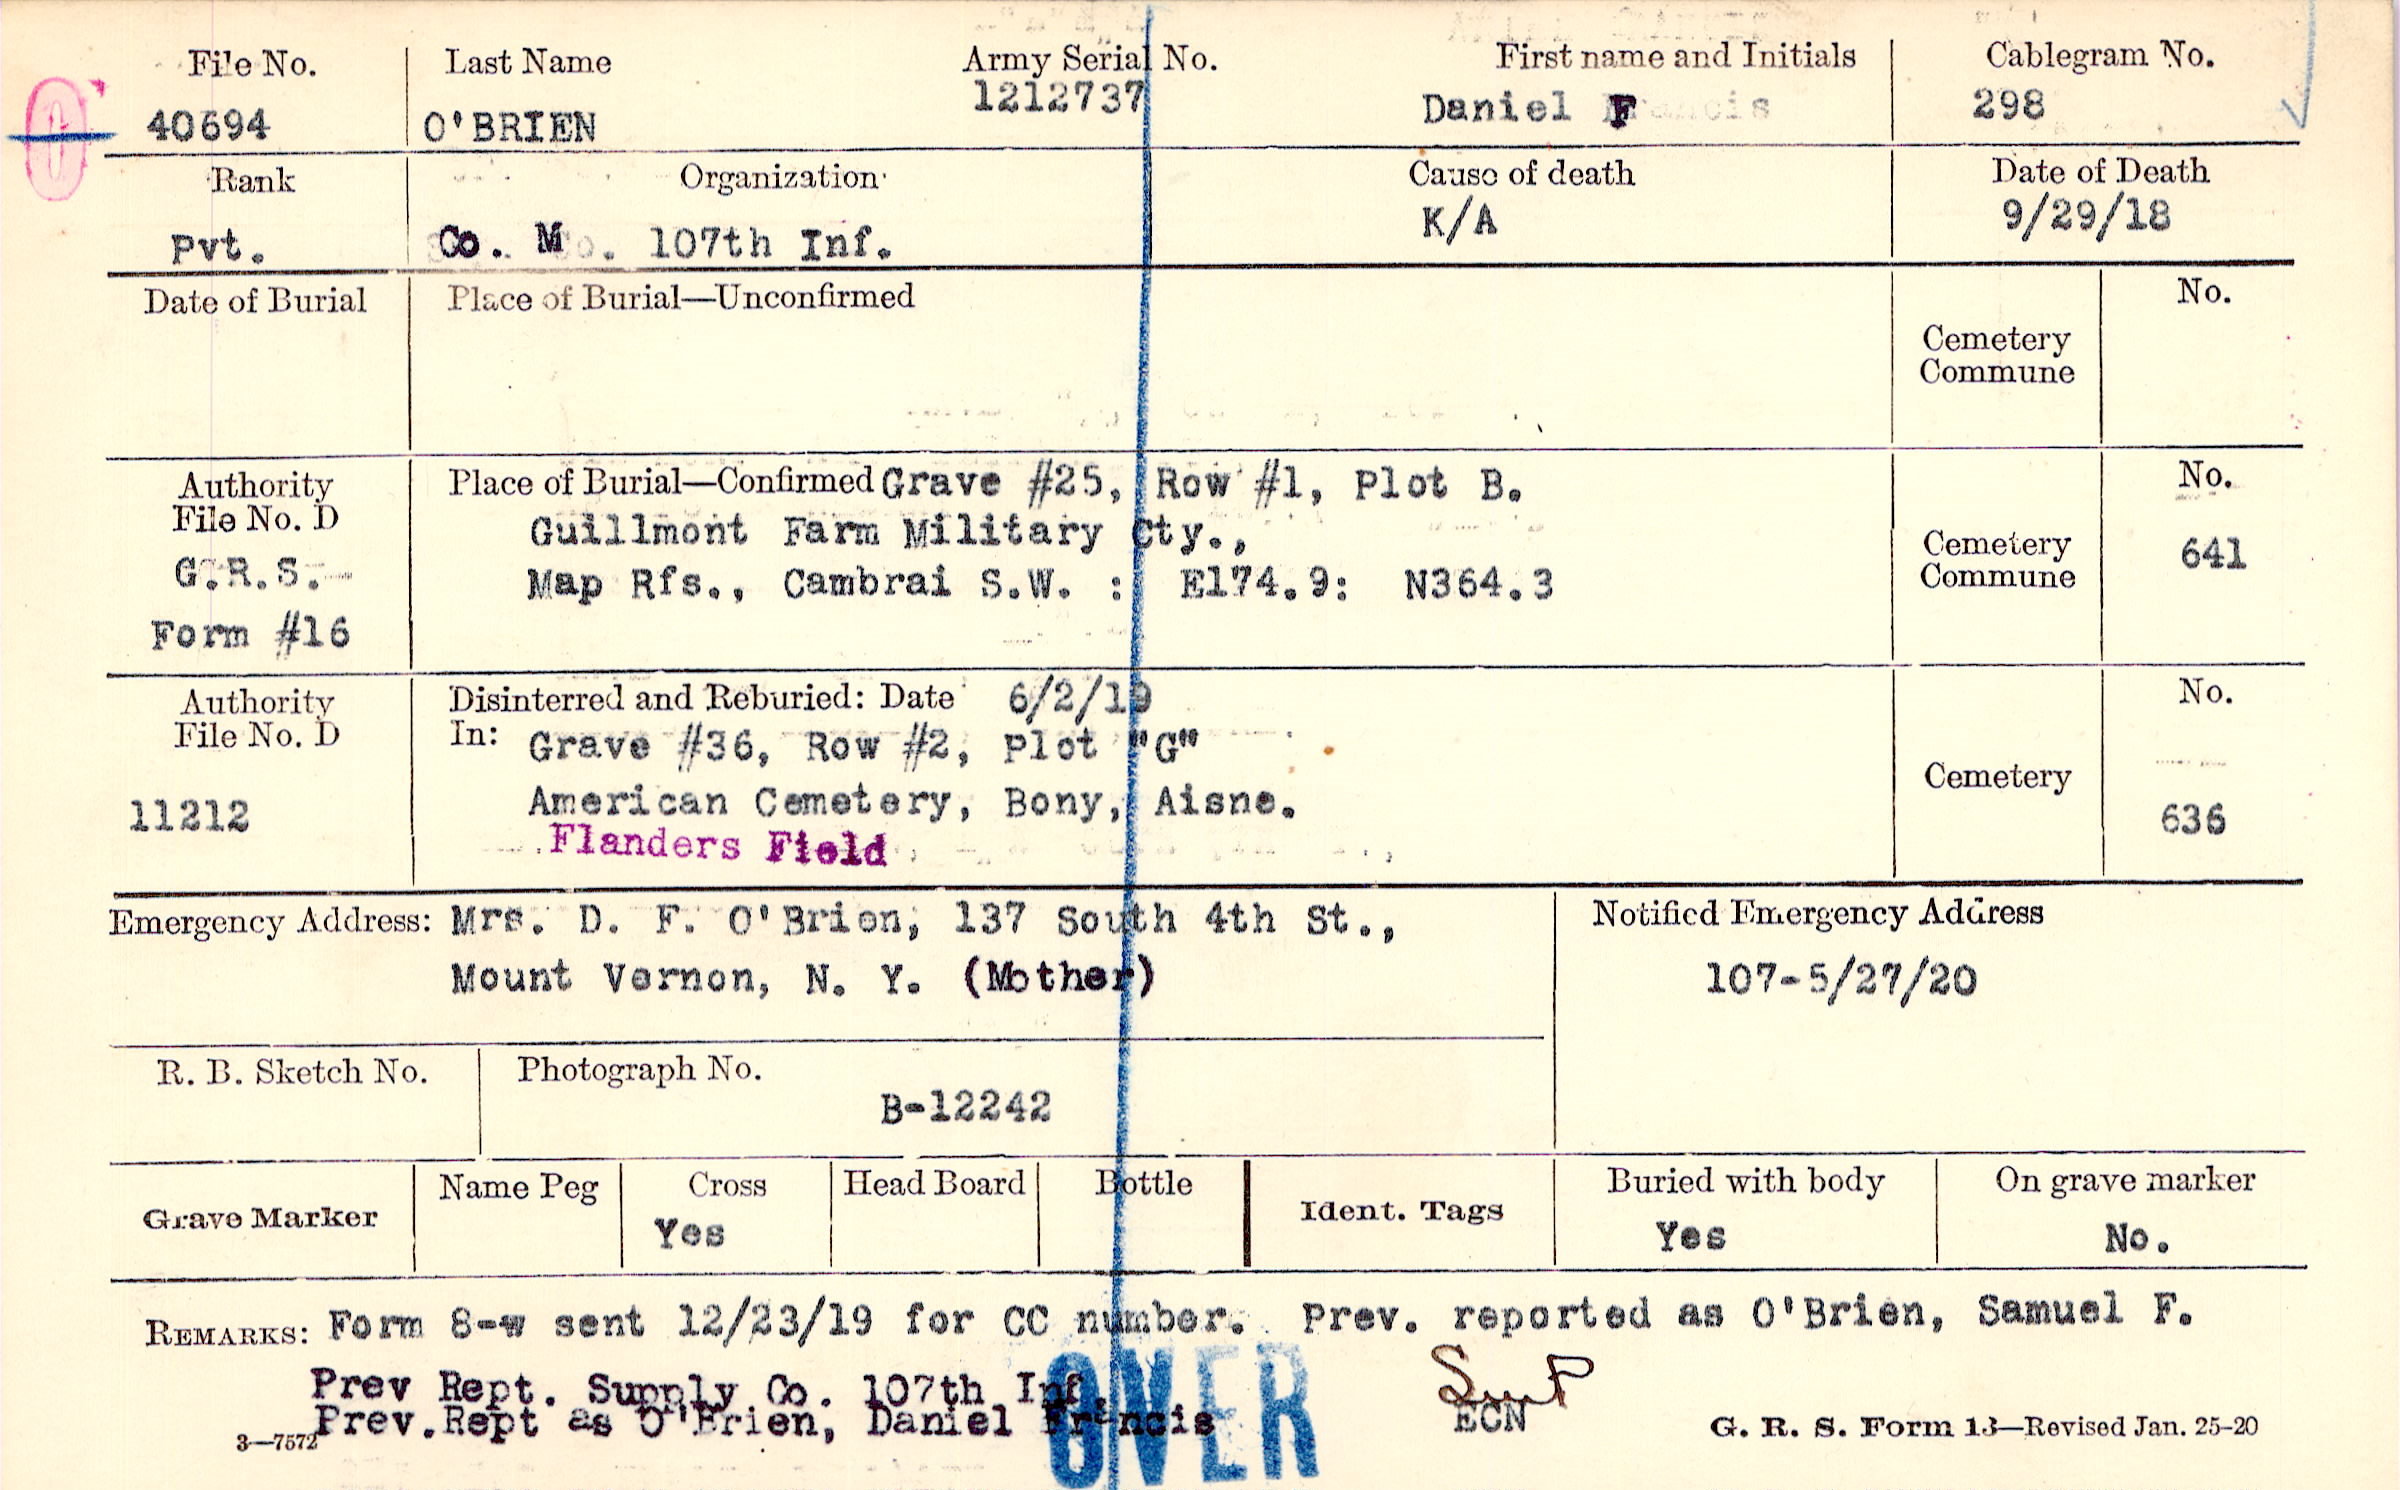 File No. Last Name Army Serial No. First name and Initials Cablegram No.
40694 O'BRIEN 1212737 Daniel F 298
Rank Organization Cause of death Date of Death
Pvt. Co. M 107th Inf. K/A 9/29/18
Date of Burial Place of Burial—Unconfirmed No.
Cemetery
Commune
Authority Place of Burial—Confirmed Grave #25, Row #1, Plot B. No.
File No. D Guillmont Farm Military Cty., Cemetery 641
G.R.S. Map Rfs., Cambrai S.W. : E174.9: N364.3 Commune
Form #16
Authority Disinterred and Reburied: Date 6/2/19 No.
File No. D In: Grave #36, Row #2, Plot "G" Cemetery
11212 American Cemetery, Bony, Aisne. 636
Flanders Field
Emergency Address: Mrs. D. F. O'Brien, 137 South 4th St., Notified Emergency Address
Mount Vernon, N. Y. (Mother) 107-5/27/20
R. B. Sketch No. Photograph No.
B-12242
Grave Marker Name Peg Cross Head Board Bottle Ident. Tags Buried with body On grave marker
Yes Yes No.
REMARKS: Form 8-w sent 12/23/19 for CC number. Prev. reported as O'Brien, Samuel F.
Prev Rept. Supply Co. 107th Inf.
Prev.Rept as O'Brien, Daniel Francis
OVER
ECN
3—7572 G. R. S. Form 13—Revised Jan. 25-20